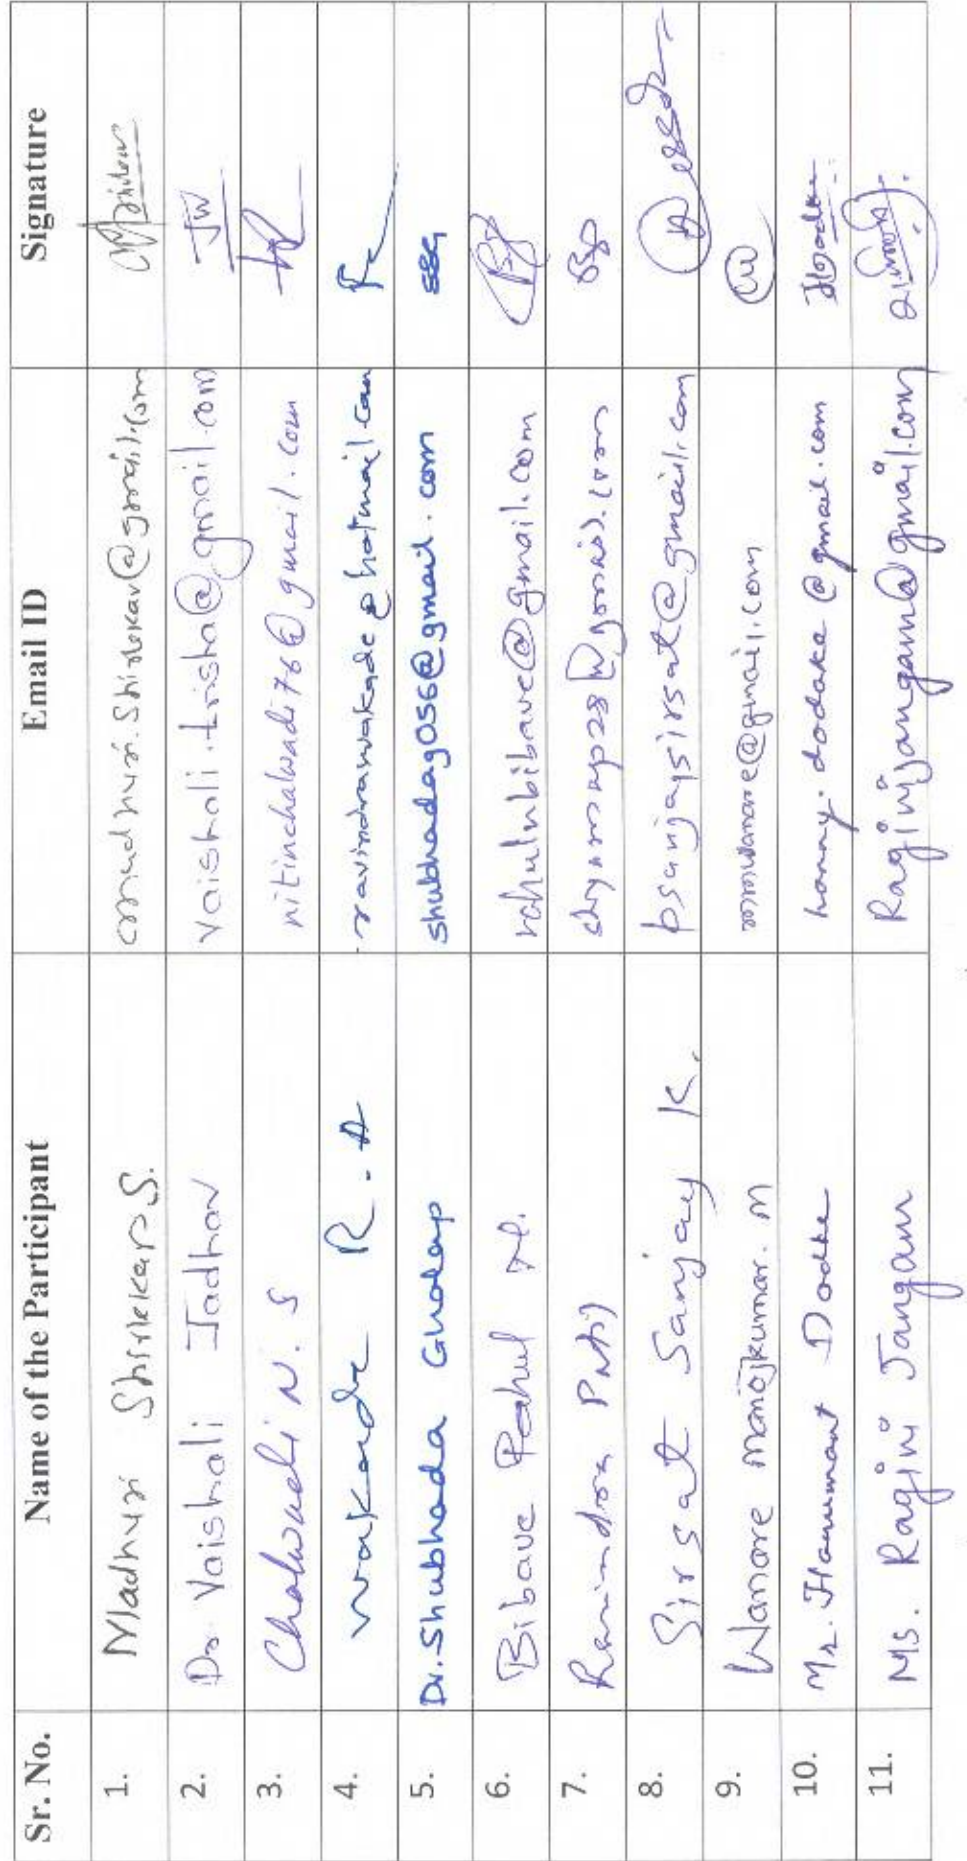 Sr. No. Name of the Participant Email ID Signature
1. Madhuri Shirkekar S.
2. Dr. Vaishali Jadhav vaishali.trisha@gmail.com JW
3. Chalwadi N. S nitinchalwadi76@gmail.com
4. Wakade R. A ravindrawakade@hotmail.com
5. Dr. Shubhada Gholap shubhadag056@gmail.com SSG
6. Bibave Rahul rahulnbibave@gmail.com
7. Ravindra Patil
8. Sirsat Sanjay K. bsanjaysirsat@gmail.com
9. Wamore Manojkumar. M
10. Mr. Hanumant Dodke hanny.dodake@gmail.com
11. Ms. Ragini Jangam Raginijangam@gmail.com